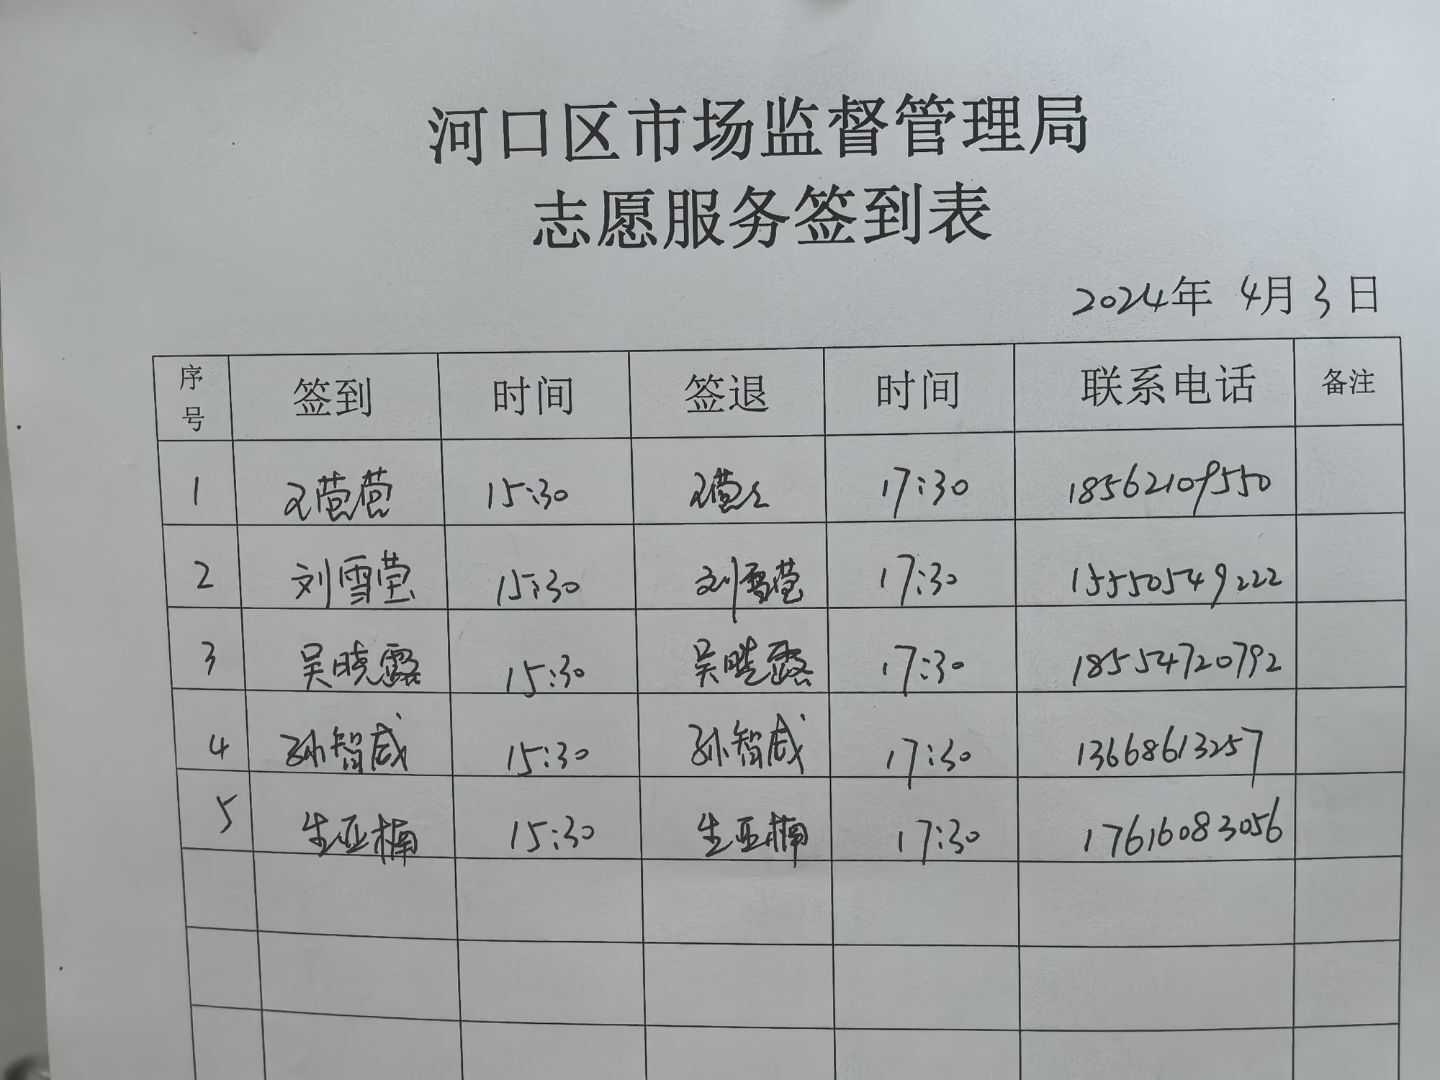 河口区市场监督管理局
志愿服务签到表
2024年 4月 3日
序号 签到 时间 签退 时间 联系电话 备注
1 15:30 17:30 18562109550
2 刘雪莹 15:30 刘雪莹 17:30 15550549222
3 吴晓露 15:30 吴晓露 17:30 18554720792
4 孙智威 15:30 孙智威 17:30 13668613257
5 生亚楠 15:30 生亚楠 17:30 17616083056